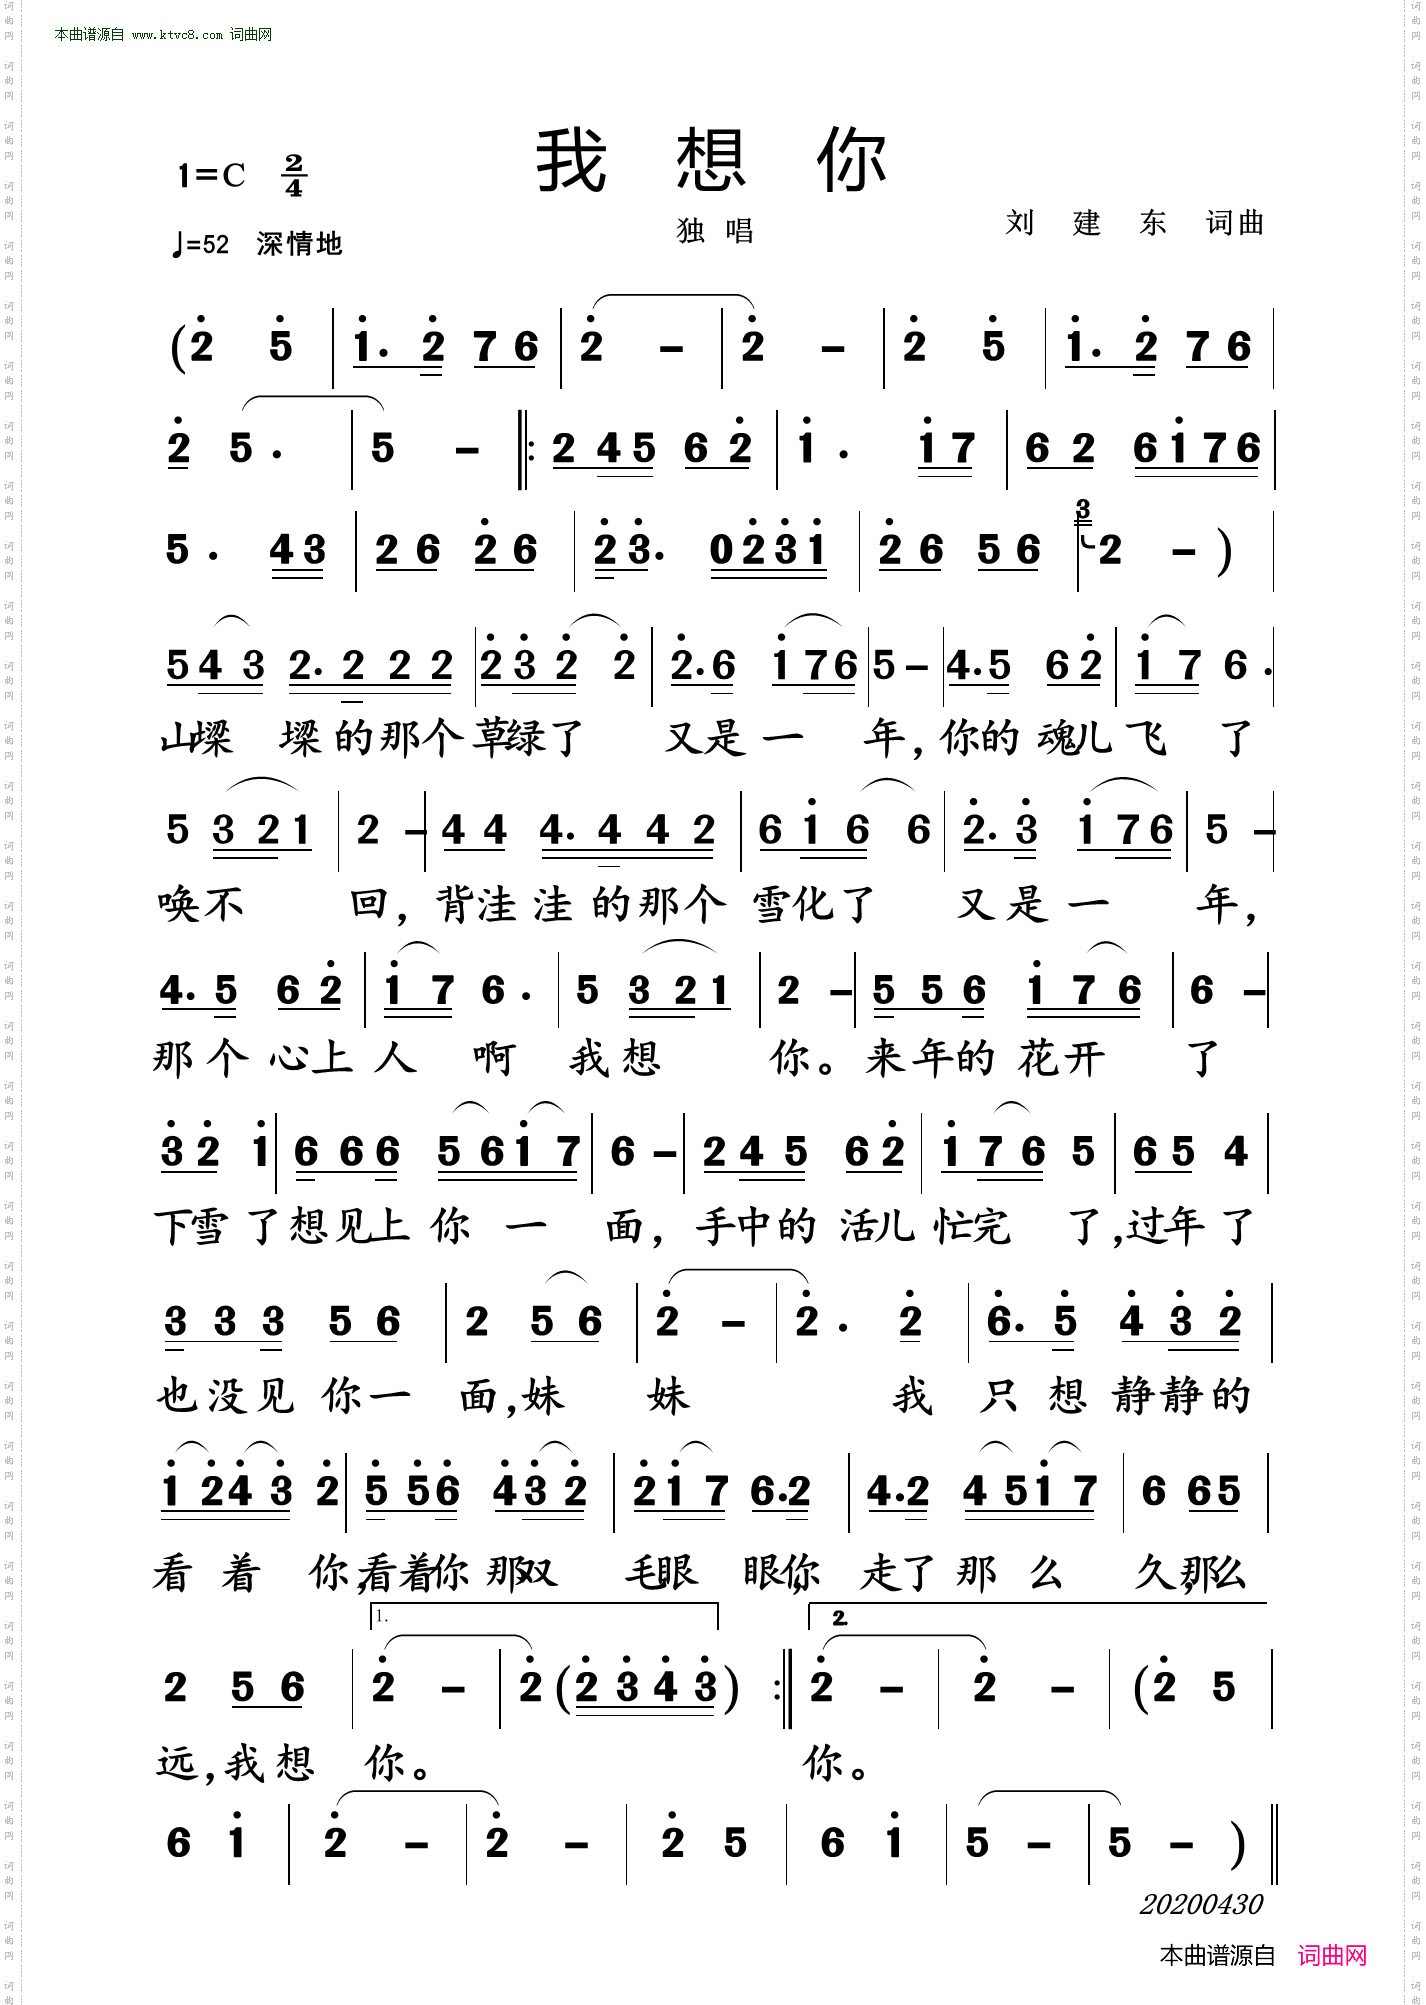 本曲谱源自 www.ktvc8.com 词曲网
我 想 你
1=C 2/4
独 唱
刘 建 东 词曲
♩=52 深情地
(2̇ 5̇ | 1̇. 2̇ 7 6 | 2̇ – | 2̇ – | 2̇ 5̇ | 1̇. 2̇ 7 6 |
2̇ 5 . | 5 – ‖: 2 4 5 6 2̇ | 1̇ . 1̇ 7 | 6 2 6 1̇ 7 6 |
5 . 4 3 | 2 6 2̇ 6 | 2̇ 3̇. 0 2̇ 3̇ 1̇ | 2̇ 6 5 6 | 3 2 – ) |
5 4 3 2. 2 2 2 | 2̇ 3̇ 2̇ 2̇ | 2̇. 6 1̇ 7 6 | 5 – | 4. 5 6 2̇ | 1̇ 7 6 . |
山墚 墚的那个草绿了 又是一 年,你的魂儿飞 了
5 3 2 1 | 2 – | 4 4 4. 4 4 2 | 6 1̇ 6 6 | 2̇. 3̇ 1̇ 7 6 | 5 – |
唤不 回,背洼洼的那个雪化了 又是一 年,
4. 5 6 2̇ | 1̇ 7 6 . | 5 3 2 1 | 2 – | 5 5 6 1̇ 7 6 | 6 – |
那个心上人 啊 我想 你。来年的花开 了
3̇ 2̇ 1̇ | 6 6 6 5 6 1̇ 7 | 6 – | 2 4 5 6 2̇ | 1̇ 7 6 5 | 6 5 4 |
下雪了想见上你 一 面,手中的活儿忙完 了,过年了
3 3 3 5 6 | 2 5 6 | 2̇ – | 2̇ . 2̇ | 6̇. 5̇ 4̇ 3̇ 2̇ |
也没见你一 面,妹 妹 我 只想静静的
1̇ 2̇ 4̇ 3̇ 2̇ | 5̇ 5̇ 6̇ 4̇ 3̇ 2̇ | 2̇ 1̇ 7 6. 2 | 4. 2 4 5 1̇ 7 | 6 6 5 |
看着 你,看着你那双 毛眼 眼,你走了那么 久,那么
1. 2.
2 5 6 | 2̇ – | 2̇ (2̇ 3̇ 4̇ 3̇) :‖ 2̇ – | 2̇ – | (2̇ 5 |
远,我想 你。 你。
6 1̇ | 2̇ – | 2̇ – | 2̇ 5 | 6 1̇ | 5 – | 5 – ) ‖
20200430
本曲谱源自 词曲网